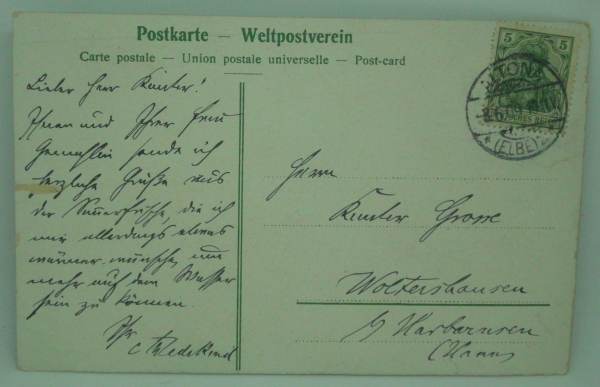 Postkarte — Weltpostverein
Carte postale — Union postale universelle — Post-card
5 5
ALTONA
(ELBE)
Lieber Herr Kantor!
Ihnen und Ihrer Frau
Gemahlin sende ich
herzliche Grüße aus
der Sommerfrische, die ich
mir allerdings etwas
wärmer wünsche, um
mehr auf dem Wasser
sein zu können.
Ihr
C Wedekind
Herrn
Kantor Grosse
Woltershausen
b/ Harbarnsen
(Hann